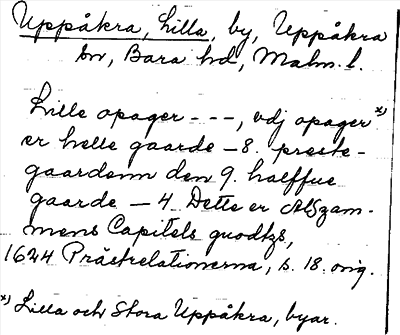 Uppåkra, Lilla, by, Uppåkra
sn, Bara hd, Malm. l.
Lille opager - - -, udj opager x)
er helle gaarde – 8. preste-
gaardenn den 9. halffue
gaarde – 4. Dette er Alszam-
mens Capitels guodtzs,
1624 Prästrelationerna, s. 18. orig.
x) Lilla och Stora Uppåkra, byar.